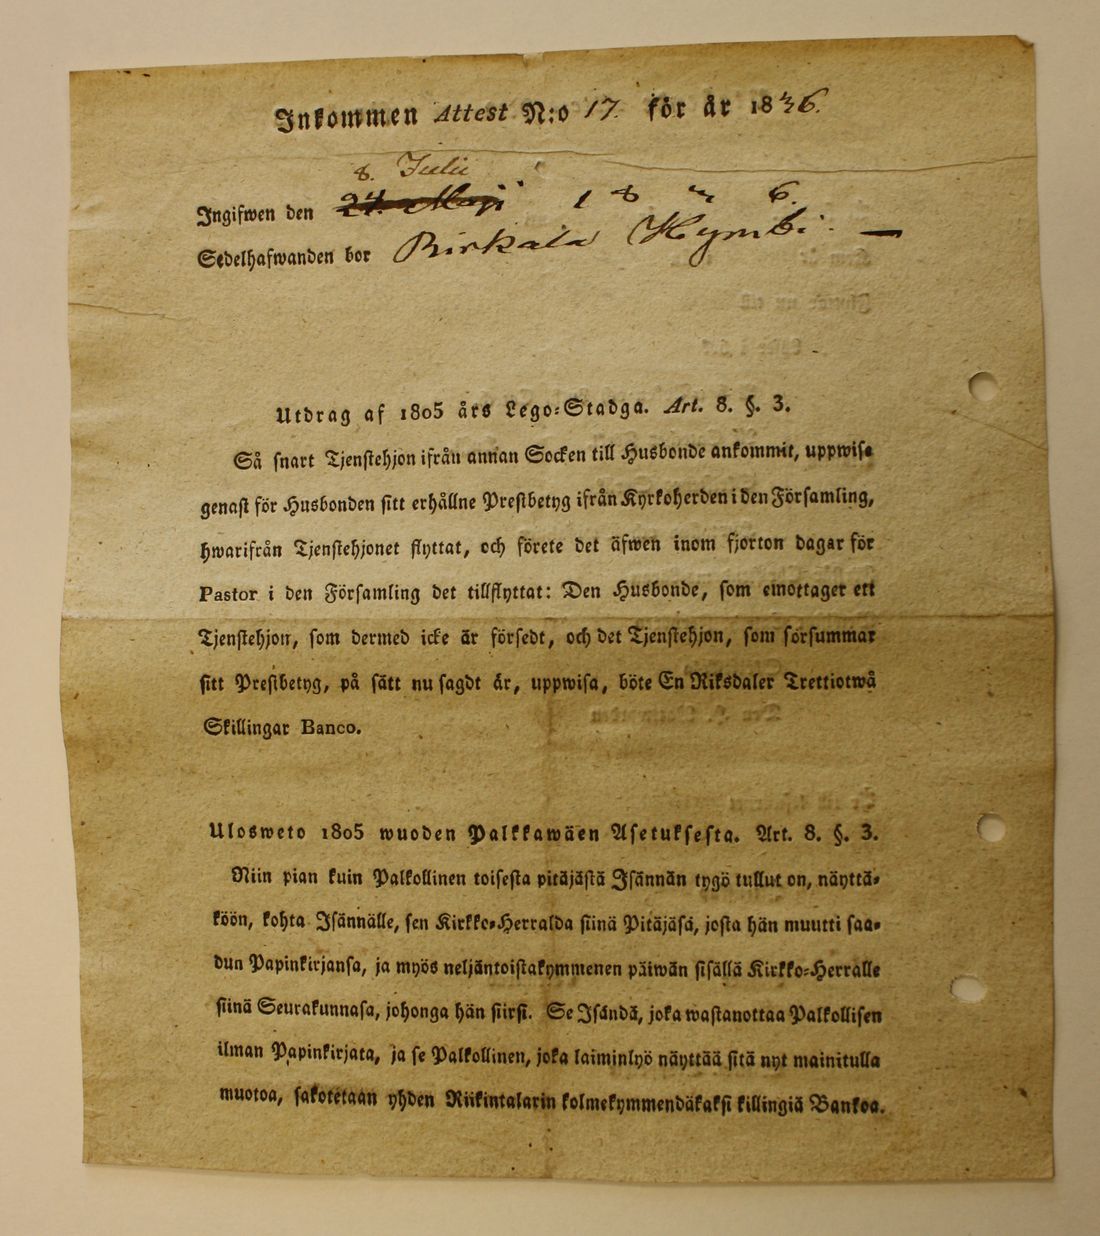 Inkommen Attest N:o 17. för år 1836.
8. Julii
Ingifwen den 27. Maji 1836.
Sedelhafwanden bor Birkala Hymbi. —
Utdrag af 1805 års Lego-Stadga. Art. 8. §. 3.
Så snart Tjenstehjon ifrån annan Socken till Husbonde ankommit, uppwise
genast för Husbonden sitt erhållne Prestbetyg ifrån Kyrkoherden i den Församling,
hwarifrån Tjenstehjonet flyttat, och förete det äfwen inom fjorton dagar för
Pastor i den Församling det tillflyttat: Den Husbonde, som emottager ett
Tjenstehjon, som dermed icke är försedt, och det Tjenstehjon, som försummar
sitt Prestbetyg, på sätt nu sagdt är, uppwisa, böte En Riksdaler Trettiotwå
Skillingar Banco.
Ulosweto 1805 wuoden Palkkawäen Asetuksesta. Art. 8. §. 3.
Niin pian kuin Palkollinen toisesta pitäjästä Isännän tygö tullut on, näyttä-
köön, kohta Isännälle, sen Kirkko-Herralda siinä Pitäjäsä, josta hän muutti saa-
dun Papinkirjansa, ja myös neljäntoistakymmenen päiwän sisällä Kirkko-Herralle
siinä Seurakunnasa, johonga hän siirsi. Se Isändä, joka wastanottaa Palkollisen
ilman Papinkirjata, ja se Palkollinen, joka laiminlyö näyttää sitä nyt mainitulla
muotoa, sakotetaan yhden Riikintalarin kolmekymmendäkaksi killingiä Bankoa.